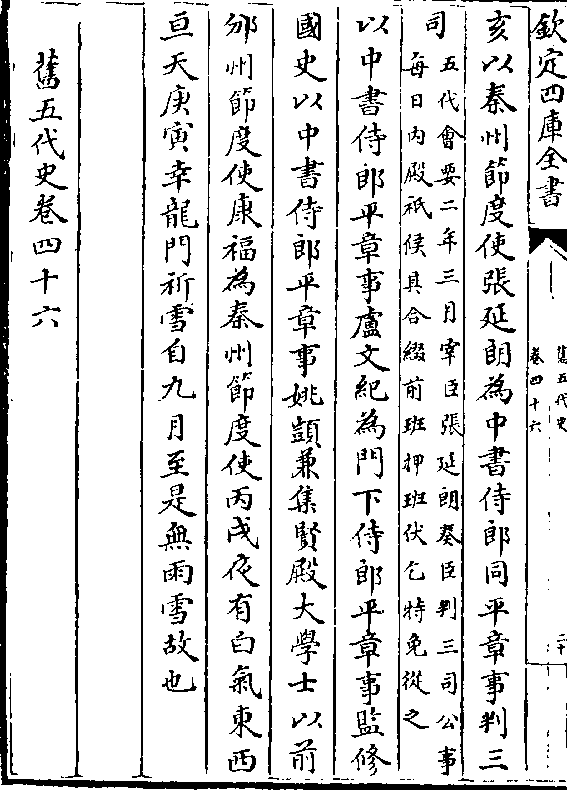 欽定四庫全書
舊五代史
卷四十六
二十
亥以秦州節度使張延朗為中書侍郎同平章事判三
司
五代會要二年三月宰臣張延朗奏臣判三司公事
每日內殿祇候其合綴前班押班伏乞特免從之
以中書侍郎平章事盧文紀為門下侍郎平章事監修
國史以中書侍郎平章事姚顗兼集賢殿大學士以前
邠州節度使康福為秦州節度使丙戌夜有白氣東西
亘天庚寅幸龍門祈雪自九月至是無雨雪故也
舊五代史卷四十六